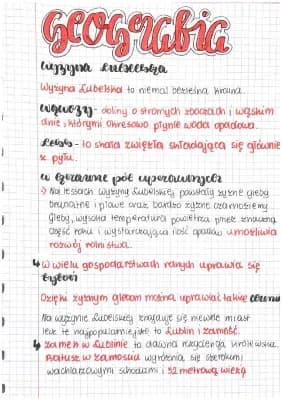 Geografia
Wyżyna Lubelska
Wyżyna Lubelska to niemal bezleśna kraina.
Wąwozy - doliny o stromych zboczach i wąskim
dnie, którymi okresowo płynie woda opadowa.
Less - to skała zwięzła składająca się głównie
z pyłu.
w krainie pól uprawnych
Na lessach Wyżyny Lubelskiej powstały żyzne gleby
brunatne i płowe oraz bardzo żyzne czarnoziemy.
Gleby, wysoka temperatura powietrza przez znaczną
część roku i wystarczająca ilość opadów umożliwia
rozwój rolnictwa.
↳ W wielu gospodarstwach rolnych uprawia się
Dzięki żyznym glebom można uprawiać także
Na wyżynie Lubelskiej znajduje się niewiele miast
lecz te najpopularniejsze to Lublin i Zamość.
↳ Zamek w Lublinie to dawna rezydencja królewska.
Ratusz w Zamościu wyróżnia się szerokimi
wachlarzowymi schodami i 52 metrową wieżą